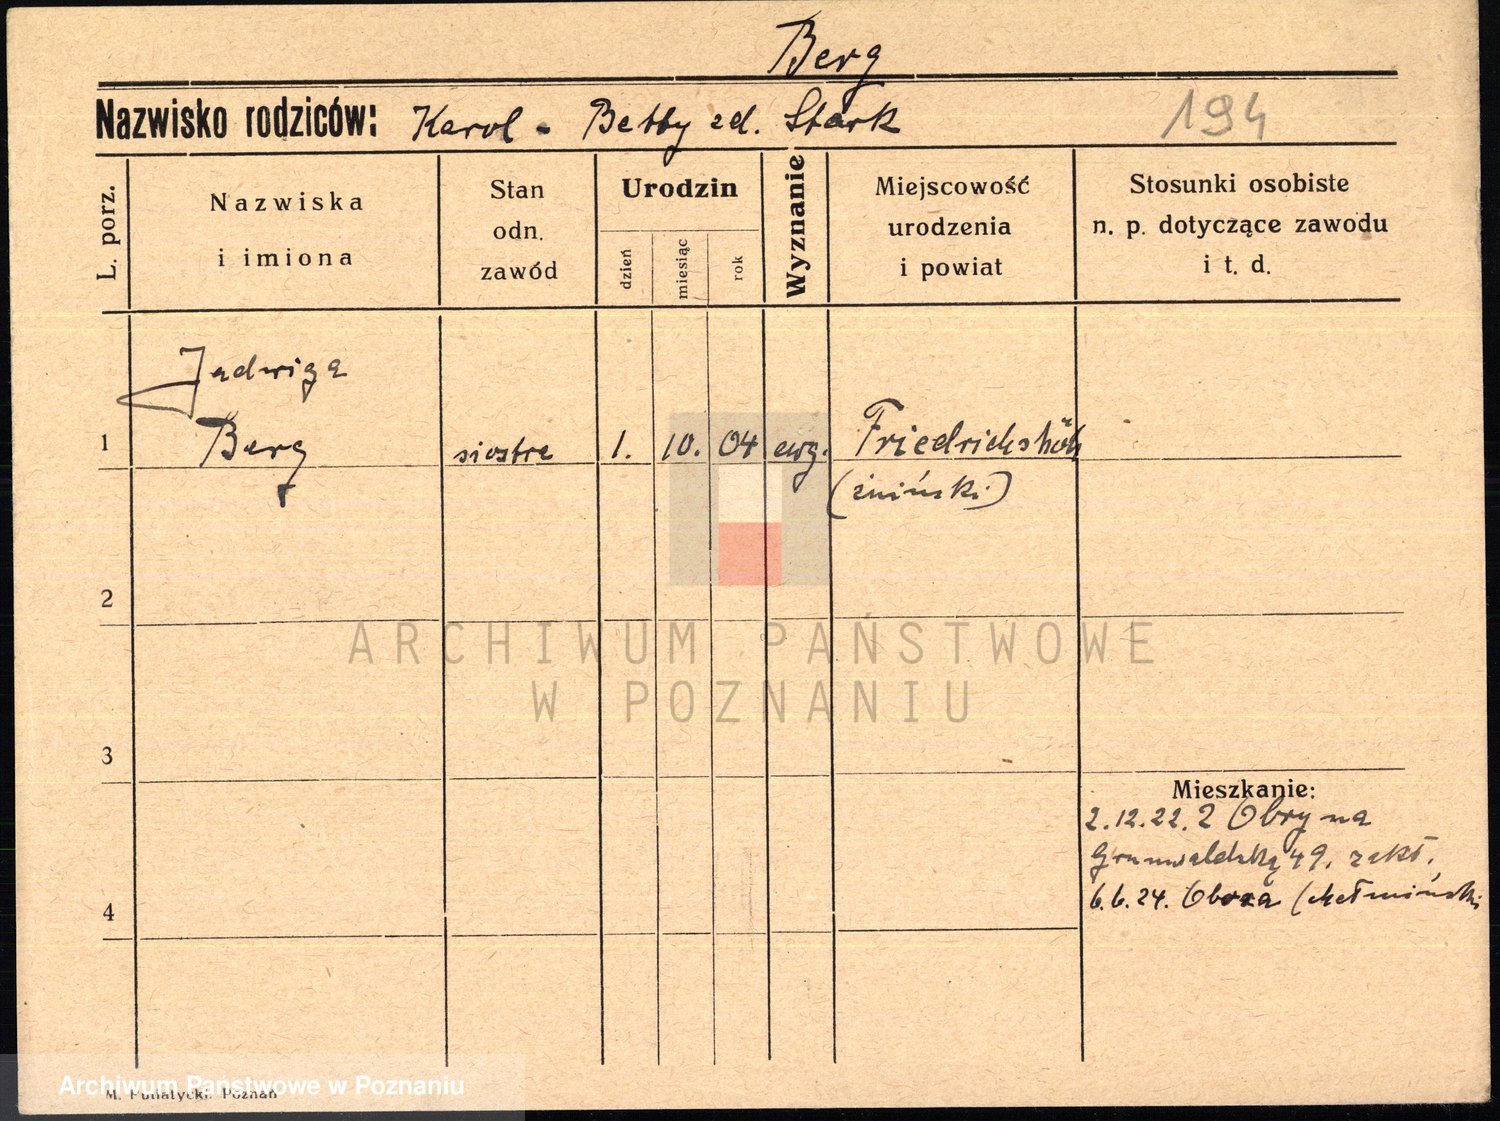 Berg
Nazwisko rodziców: Karol - Betty zd. Stark
194
L. porz.
Nazwiska
i imiona
Stan
odn.
zawód
Urodzin
dzień
miesiąc
rok
Wyznanie
Miejscowość
urodzenia
i powiat
Stosunki osobiste
n. p. dotyczące zawodu
i t. d.
Jadwiga
1 Berg siostra 1. 10. 04 ewg. Friedrichshöh
(żniński)
2
ARCHIWUM PAŃSTWOWE
W POZNANIU
3
Mieszkanie:
2.12.22. Z Obry na
Grunwaldzką 49. zakł.
4
6.6.24. (chełmiński
Archiwum Państwowe w Poznaniu
M. Putiatycki. Poznań